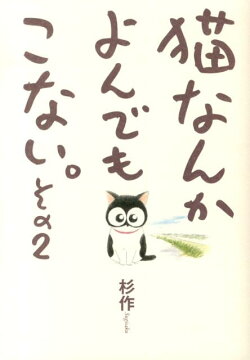 猫なんか
よんでも
こない。その2
杉作
Sugisaku